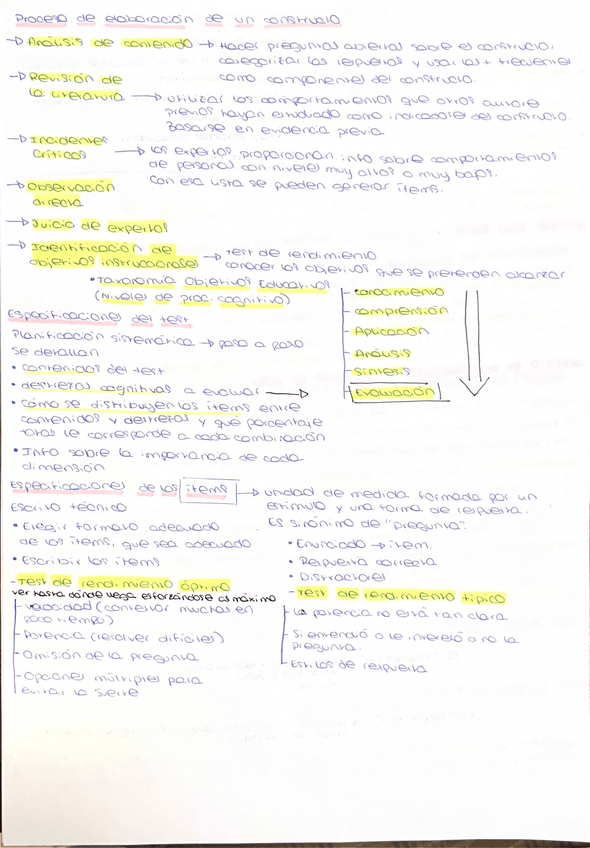 Proceso de elaboración de un constructo
→ Análisis de contenido → Hacer preguntas abiertas sobre el constructo,
categorizar las respuestas y usar las + frecuentes
como componentes del constructo.
→ Revisión de
la literatura → utilizar los comportamientos que otros autores
previos hayan estudiado como indicadores del constructo.
Basarse en evidencia previa
→ Incidentes
críticos → los expertos, proporcionan info sobre comportamientos
de personas con niveles muy altos o muy bajos.
Con esa lista se pueden generar items.
→ Observación
directa
→ Juicio de expertos
→ Identificación de
objetivos instruccionales → test de rendimiento
conocer los objetivos que se pretenden alcanzar
• Taxonomía Objetivos Educativos
(Niveles de proc. cognitivo)
- Conocimiento
- Comprensión
- Aplicación
- Análisis
- Síntesis
- Evaluación
Especificaciones del test
Planificación sistemática → paso a paso
se detallan
• contenidos del test
• destrezas cognitivas a evaluar →
• cómo se distribuyen los items entre
contenidos y destrezas y que porcentaje
le corresponde a cada combinación
• Info sobre la importancia de cada
dimensión
Especificaciones de los items → unidad de medida formada por un
estímulo y una forma de respuesta.
Es sinónimo de "pregunta".
Escrito técnico
• Elegir formato adecuado
de los items, que sea adecuado
• Escribir los items
• Enunciado → item.
• Respuesta correcta
• Distractores
- Test de rendimiento óptimo
ver hasta dónde llega esforzándose al máximo
- Velocidad (contestar muchas en
poco tiempo)
- Potencia (resolver difíciles)
- Omisión de la pregunta
- Opciones múltiples para
evitar la suerte
- Test de rendimiento típico
- La potencia no está tan clara
- Si entendió o le interesó o no la
pregunta.
- Estilos de respuesta